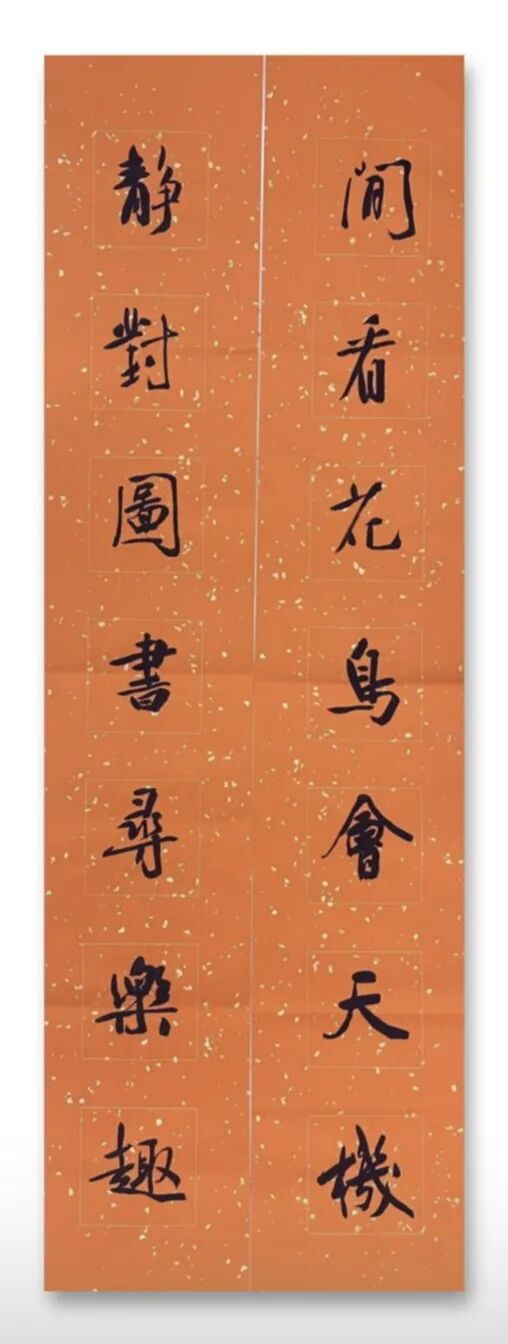 閒看花鳥會天機
靜對圖書尋樂趣